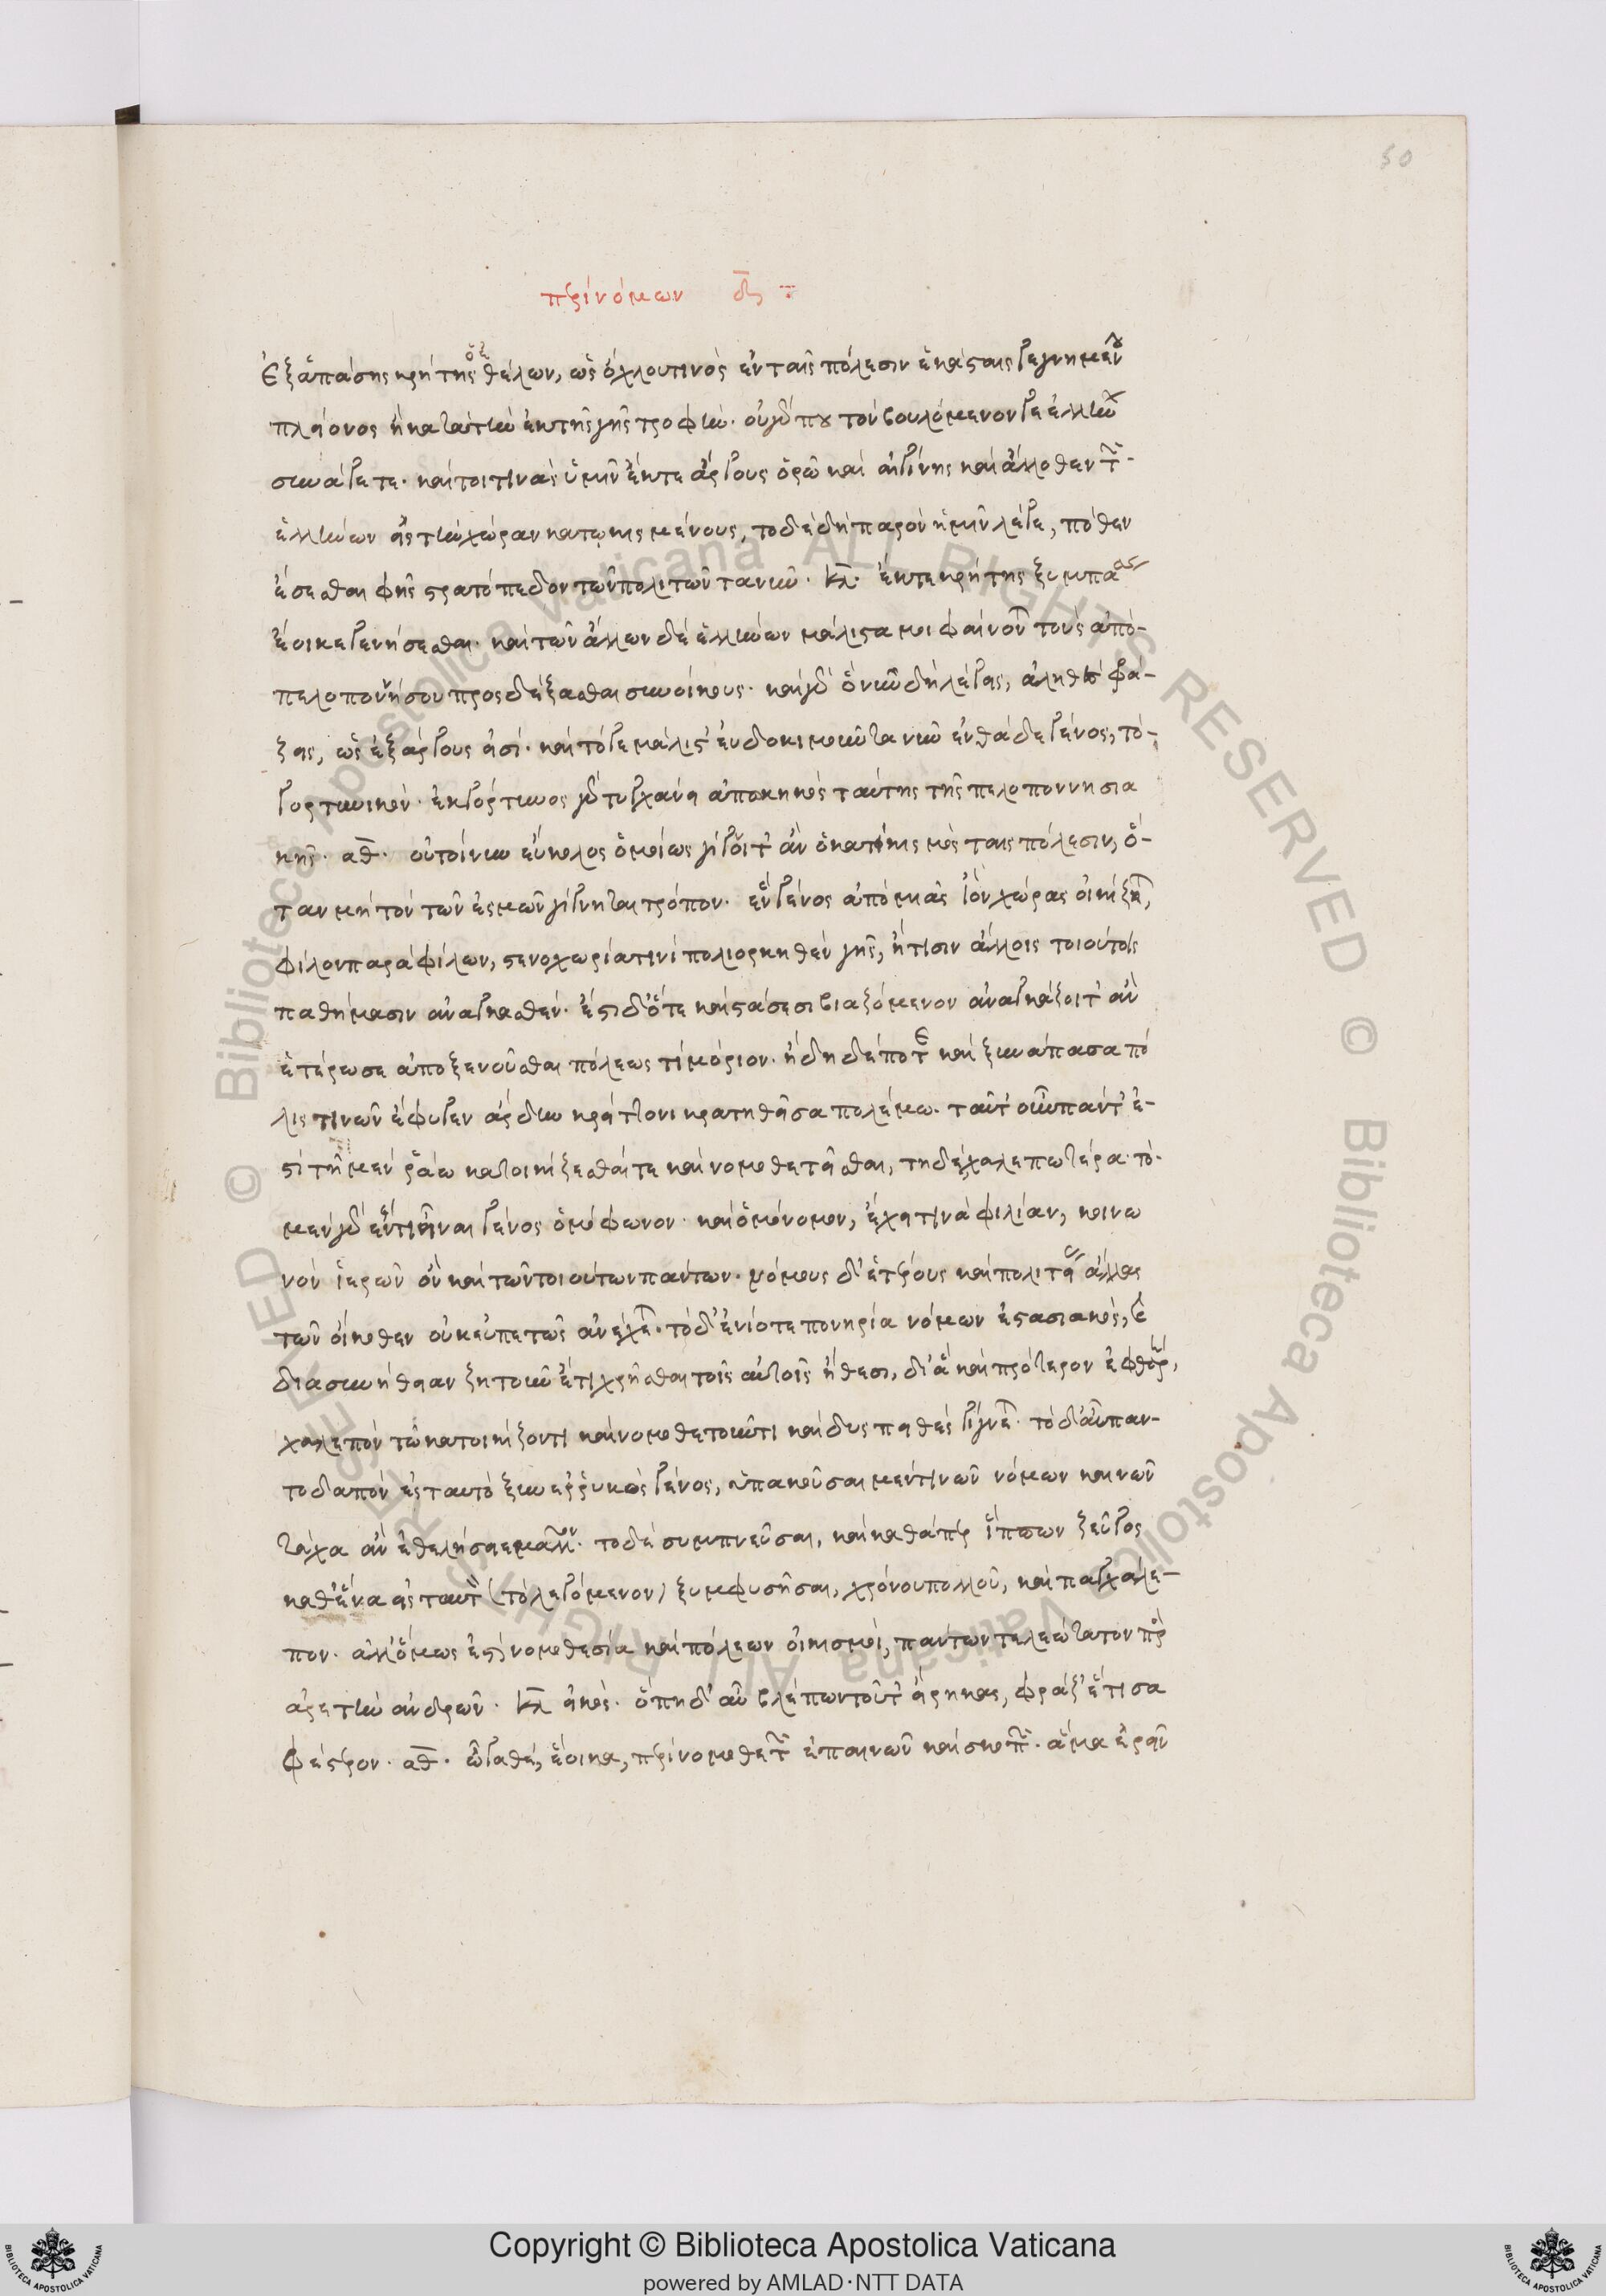 50
περὶ νόμων δ
ἐξ ἁπάσης κρήτης ὁ ἐθέλων, ὡς ὄχλου τινὸς ἐν ταῖς πόλεσιν ἑκάσταις γεγνημένου
πλείονος ἢ κατὰ τὴν ἐκ τῆς γῆς τροφήν. οὐ γάρ που τὸν βουλόμενόν γε ἑλλήνων
συνάγετε. καί τοι τινὰς ὑμῖν ἔκ τε ἄργους ὁρῶ καὶ αἰγίνης καὶ ἄλλοθεν τῶν
ἑλλήνων εἰς τὴν χώραν κατῳκισμένους, τὸ δὲ δὴ παρὸν ἡμῖν λέγε, πόθεν
ἔσεσθαι φῂς στρατόπεδον τῶν πολιτῶν τανῦν. κλ. ἔκ τε κρήτης ξυμπάσης
ἔοικε γενήσεσθαι. καὶ τῶν ἄλλων δὲ ἑλλήνων μάλιστά μοι φαίνονται τοὺς ἀπὸ
πελοποννήσου προσδέξασθαι συνοίκους. καὶ γὰρ ὃ νῦν δὴ λέγεις, ἀληθὲς φρά-
ζεις, ὡς ἐξ ἄργους εἰσί. καὶ τό γε μάλιστ' εὐδοκιμοῦν τανῦν ἐνθάδε γένος, τὸ
γορτυνικόν. ἐκ γόρτυνος γὰρ τυγχάνει ἀπῳκηκὸς ταύτης τῆς πελοποννησια
κῆς. ἀθ. οὐ τοίνυν εὔκολος ὁμοίως γίγνοιτ' ἂν ὁ κατοικισμὸς ταῖς πόλεσιν, ὅ-
ταν μὴ τὸν τῶν ἐσμῶν γίγνηται τρόπον. ἓν γένος ἀπὸ μιᾶς ἰὸν χώρας οἰκίζηται,
φίλον παρὰ φίλων, στενοχωρίᾳ τινὶ πολιορκηθὲν γῆς, ἤ τισιν ἄλλοις τοιούτοις
παθήμασιν ἀναγκασθέν. ἔστι δ' ὅτε καὶ στάσεσι βιαζόμενον ἀναγκάζοιτ' ἂν
ἑτέρωσε ἀποξενοῦσθαι πόλεώς τι μόριον. ἤδη δέ ποτε καὶ ξυνάπασα πό
λις τινῶν ἔφυγεν ἄρδην κρείττονι κρατηθεῖσα πολέμῳ. ταῦτ' οὖν πάντ' ἐ-
στὶ τῇ μὲν ῥᾴω κατοικίζεσθαί τε καὶ νομοθετεῖσθαι, τῇ δὲ χαλεπωτέρα. τὸ
μὲν γὰρ ἕν τι εἶναι γένος ὁμόφωνον καὶ ὁμόνομον, ἔχει τινὰ φιλίαν, κοινω
νὸν ἱερῶν ὂν καὶ τῶν τοιούτων πάντων. νόμους δ' ἑτέρους καὶ πολιτείας ἄλλας
τῶν οἴκοθεν οὐκ εὐπετῶς ἀνέχεται. τὸ δ' ἐνίοτε πονηρίᾳ νόμων ἐστασιακὸς, καὶ
διὰ συνήθειαν ζητοῦν ἔτι χρῆσθαι τοῖς αὐτοῖς ἤθεσι, δι' ἃ καὶ πρότερον ἐφθάρη,
χαλεπὸν τῷ κατοικίζοντι καὶ νομοθετοῦντι καὶ δυσπειθὲς γίγνεται. τὸ δ' αὖ παν-
τοδαπὸν ἐς ταυτὸ ξυνερρυηκὸς γένος, ὑπακοῦσαι μέν τινῶν νόμων καινῶν
τάχα ἂν ἐθελήσειε μᾶλλον. τὸ δὲ συμπνεῦσαι, καὶ καθάπερ ἵππων ζεῦγος
καθ' ἕνα εἰς ταυτὸν (τὸ λεγόμενον) ξυμφυσῆσαι, χρόνου πολλοῦ, καὶ παγχάλε-
πον. ἀλλ' ὅμως ἐστὶ νομοθεσία καὶ πόλεων οἰκισμοί, πάντων τελεώτατον πρὸς
ἀρετὴν ἀνδρῶν. κλ εἰκός. ὅπῃ δ' αὖ βλέπων τοῦτ' εἴρηκας, φράζ' ἔτι σα
φέστερον. ἀθ. ὦγαθέ, ἔοικα, περὶ νομοθετῶν ἐπανιὼν καὶ σκοπῶν. ἅμα ἐρεῖν
Copyright © Biblioteca Apostolica Vaticana
powered by AMLAD·NTT DATA